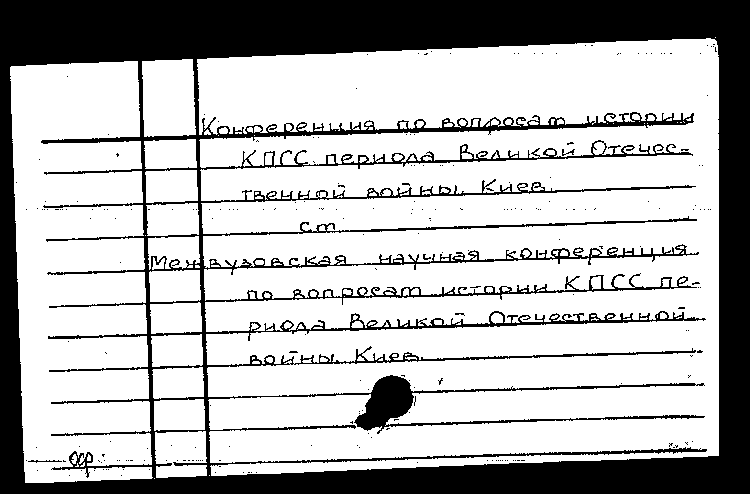 Конференция по вопросам истории
КПСС периода Великой Отечес-
твенной войны. Киев.
см
Межвузовская научная конференция
по вопросам истории КПСС пе-
риода Великой Отечественной
войны. Киев.